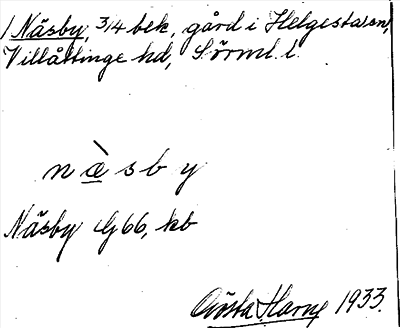 1 Näsby, 3/4 bek, gård i Helgesta sn,
Villåttinge hd, Sörml. l.
næ̀sby
Näsby G66, kb
Gösta Harne 1933.